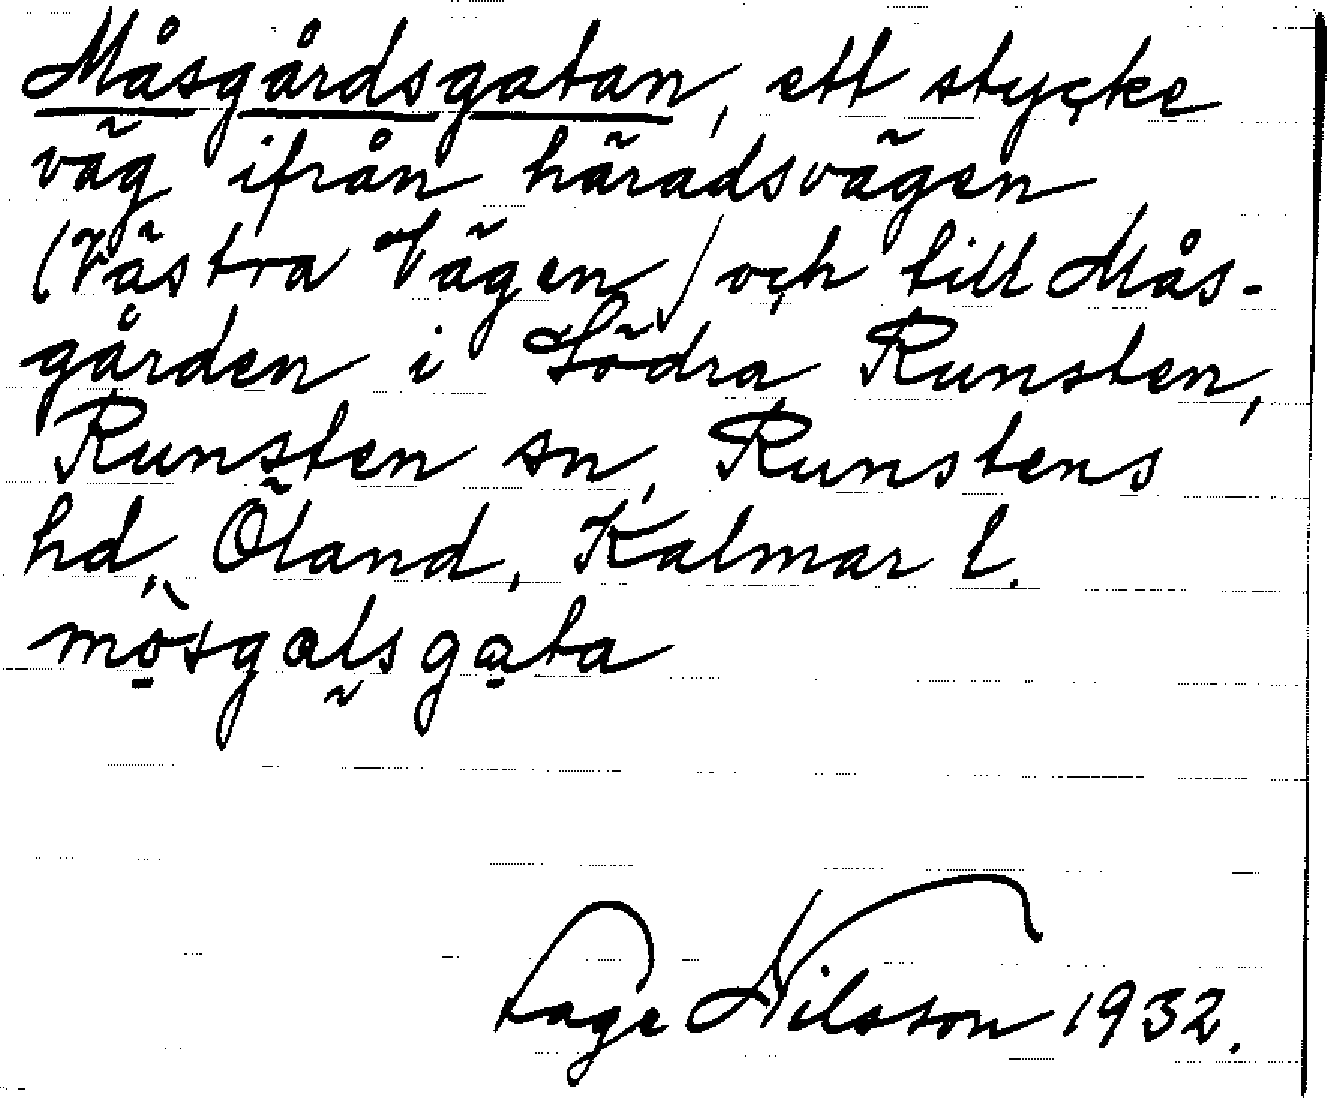 Måsgårdsgatan, ett stycke
väg ifrån häradsvägen
(Västra Vägen) och till Mås-
gården i Södra Runsten,
Runsten sn, Runstens
hd, Öland, Kalmar l.
mòsgalsgata
Tage Nilsson 1932.